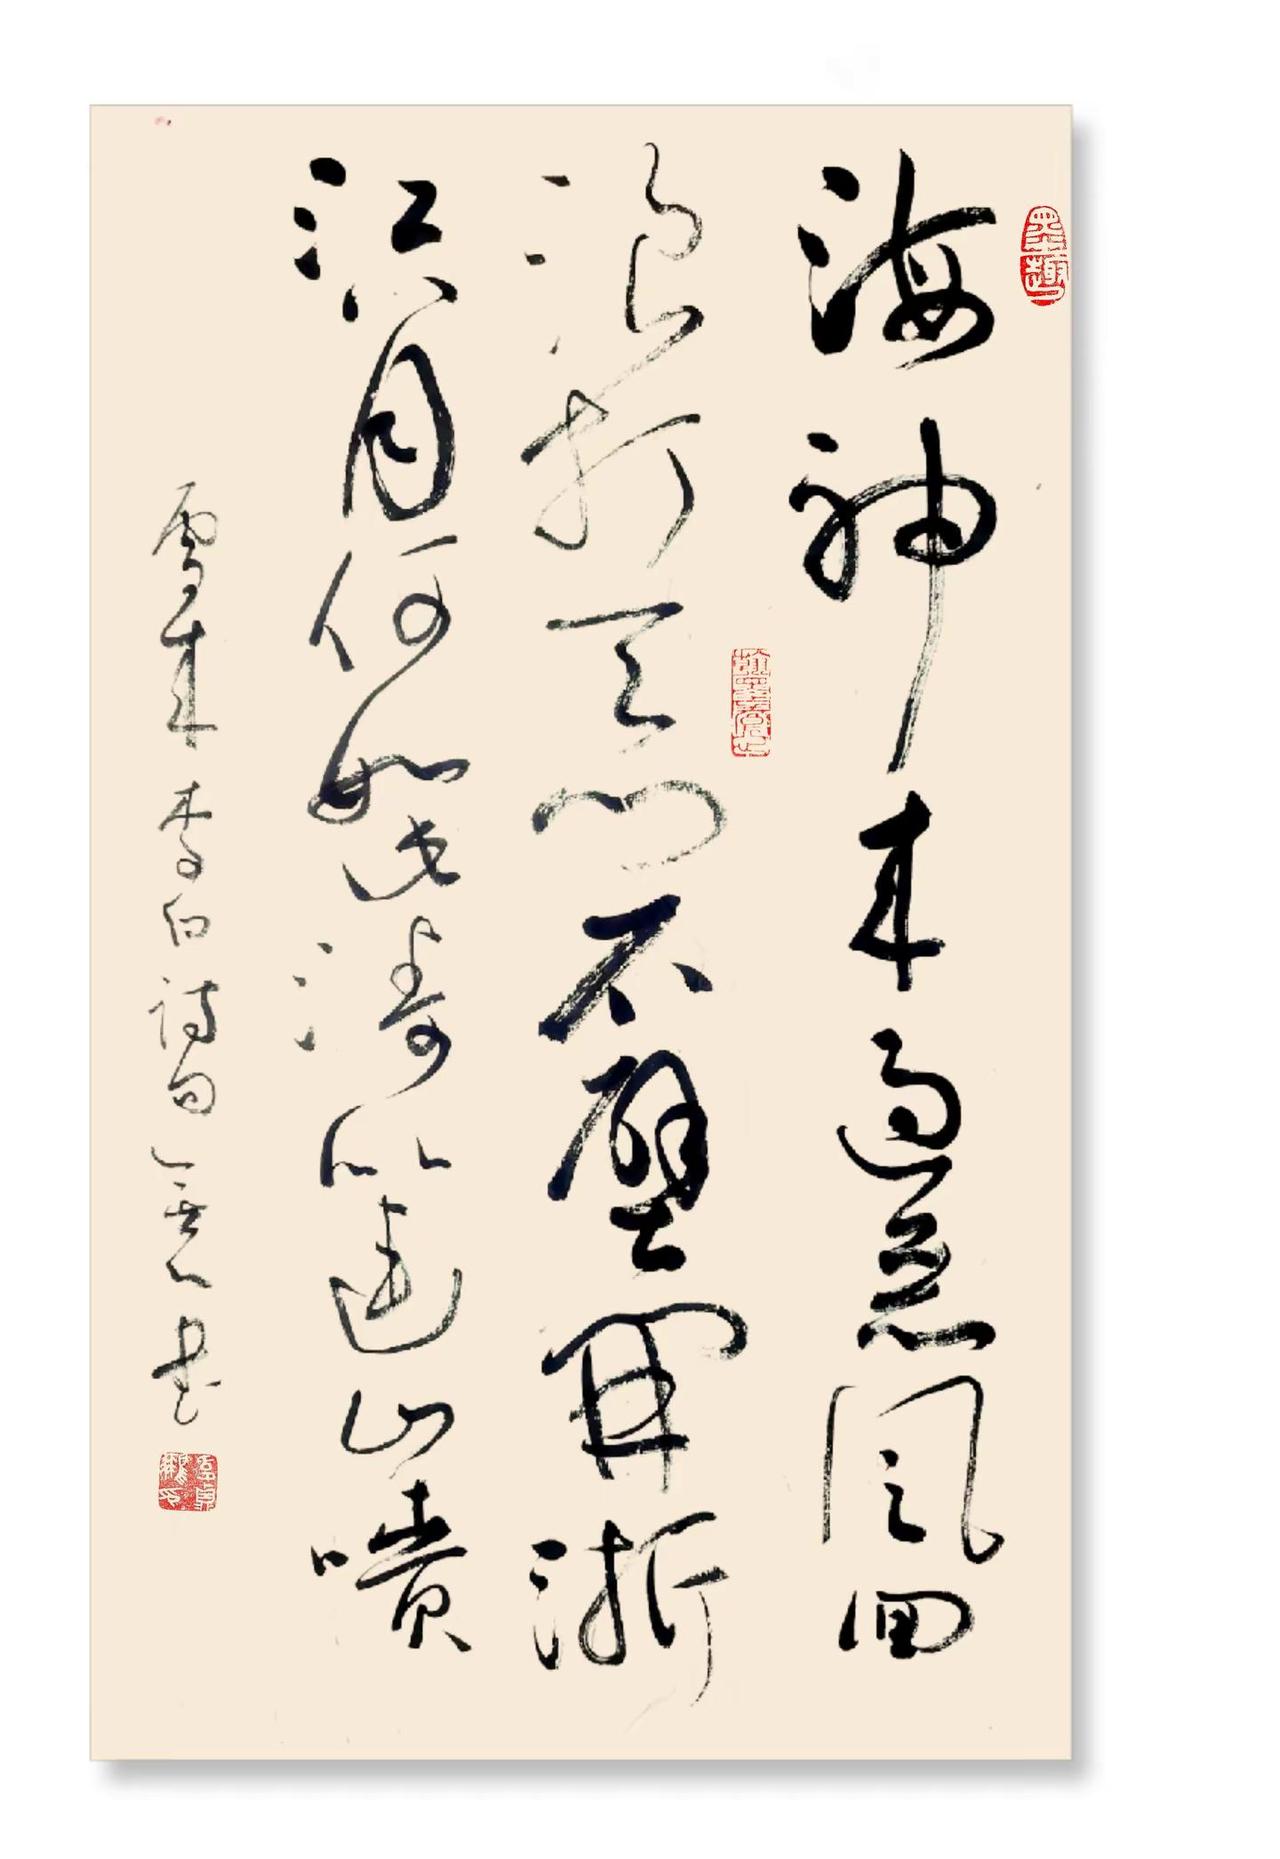 墨趣
海神来過惡風回
浪打天門石壁開浙
江八月何如此濤似連山噴
雪来 李白詩句 書